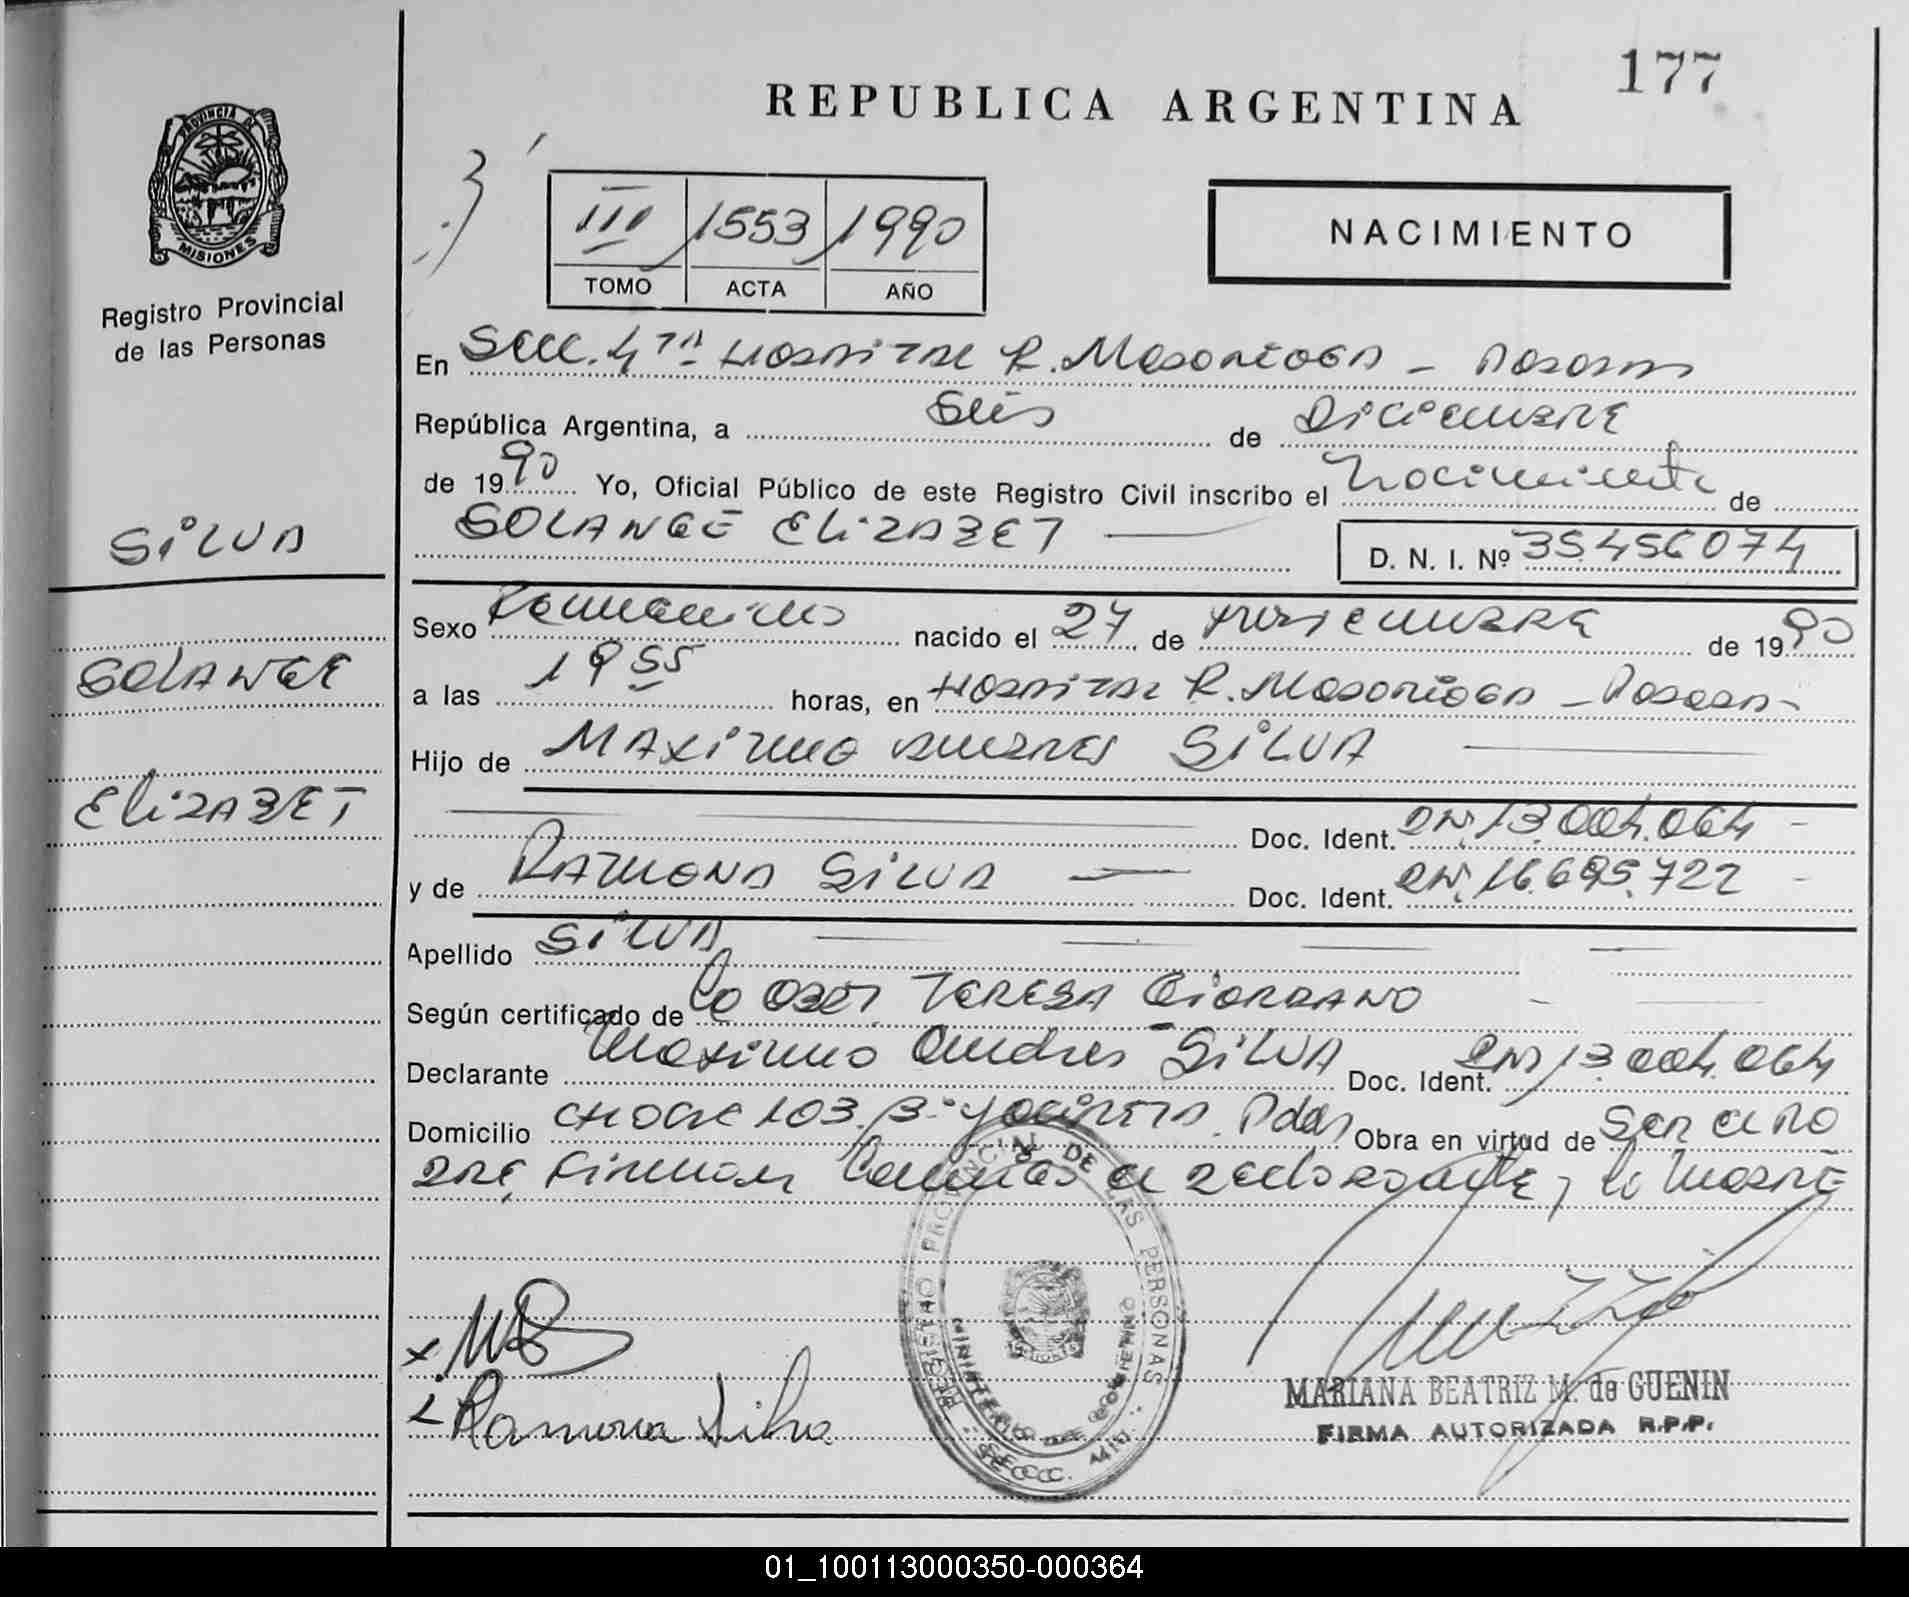 177
REPUBLICA ARGENTINA
PROVINCIA DE
MISIONES
Registro Provincial
de las Personas
III 1553 1990
TOMO ACTA AÑO
NACIMIENTO
En Secc. 4ta Hospital R. Madariaga - Posadas
República Argentina, a Seis de Diciembre
de 1990 Yo, Oficial Público de este Registro Civil inscribo el Nacimiento de
SOLANGE ELIZABET
D. N. I. Nº 35456074
SILVA
SOLANGE
ELIZABET
Sexo Femenino nacido el 27 de Noviembre de 1990
a las 19 55 horas, en Hospital R. Madariaga - Posadas -
Hijo de MAXIMO ANDRES SILVA
Doc. Ident. DNI 13.004.064 -
y de RAMONA SILVA Doc. Ident. DNI 16.695.722 -
Apellido SILVA
Según certificado de la Obst. TERESA GIORDANO
Declarante Maximo Andres SILVA Doc. Ident. DNI 13.004.064
Domicilio 103. Bº Yaciretá. Pdas Obra en virtud de Ser el Pa
dre, Firman Con el y la Madre
REGISTRO PROVINCIAL DE LAS PERSONAS
MINISTERIO DE GOBIERNO
SECC. 4ta
Ramona Silva
MARIANA BEATRIZ M. de GUENIN
FIRMA AUTORIZADA R.P.P.
01_100113000350-000364